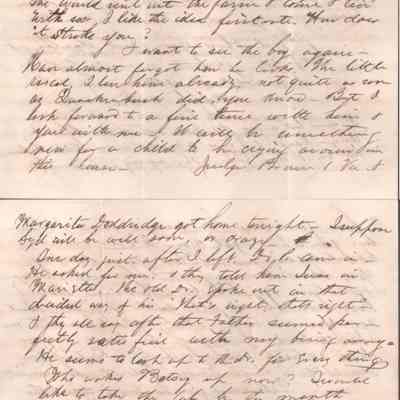 She would rent out the farm & come & live
with so. I like the idea first rate. How does
it strike you?
I want to see the boy again -
Have almost forgot how he looks. The little
rascal, I love him already - not quite as soon
as did, you know - But I
look forward to a fine time with him &
you with me - It will be something
new for a child to be crying around in
this house - Judge Brown &
Margarita Doddridge got home tonight - I suppose
Syd will be well soon, or crazy
One day just after I left, came in -
He asked for me, & they told him I was in
Marietta. The old Dr. spoke out in that
decided way of his "That's right, that's right" -
& they all say after that Father seemed per-
fectly satisfied with my being away -
He seems to look up to the Dr. for every thing
Who wakes Betsey up now? I would
like to take the job by the month